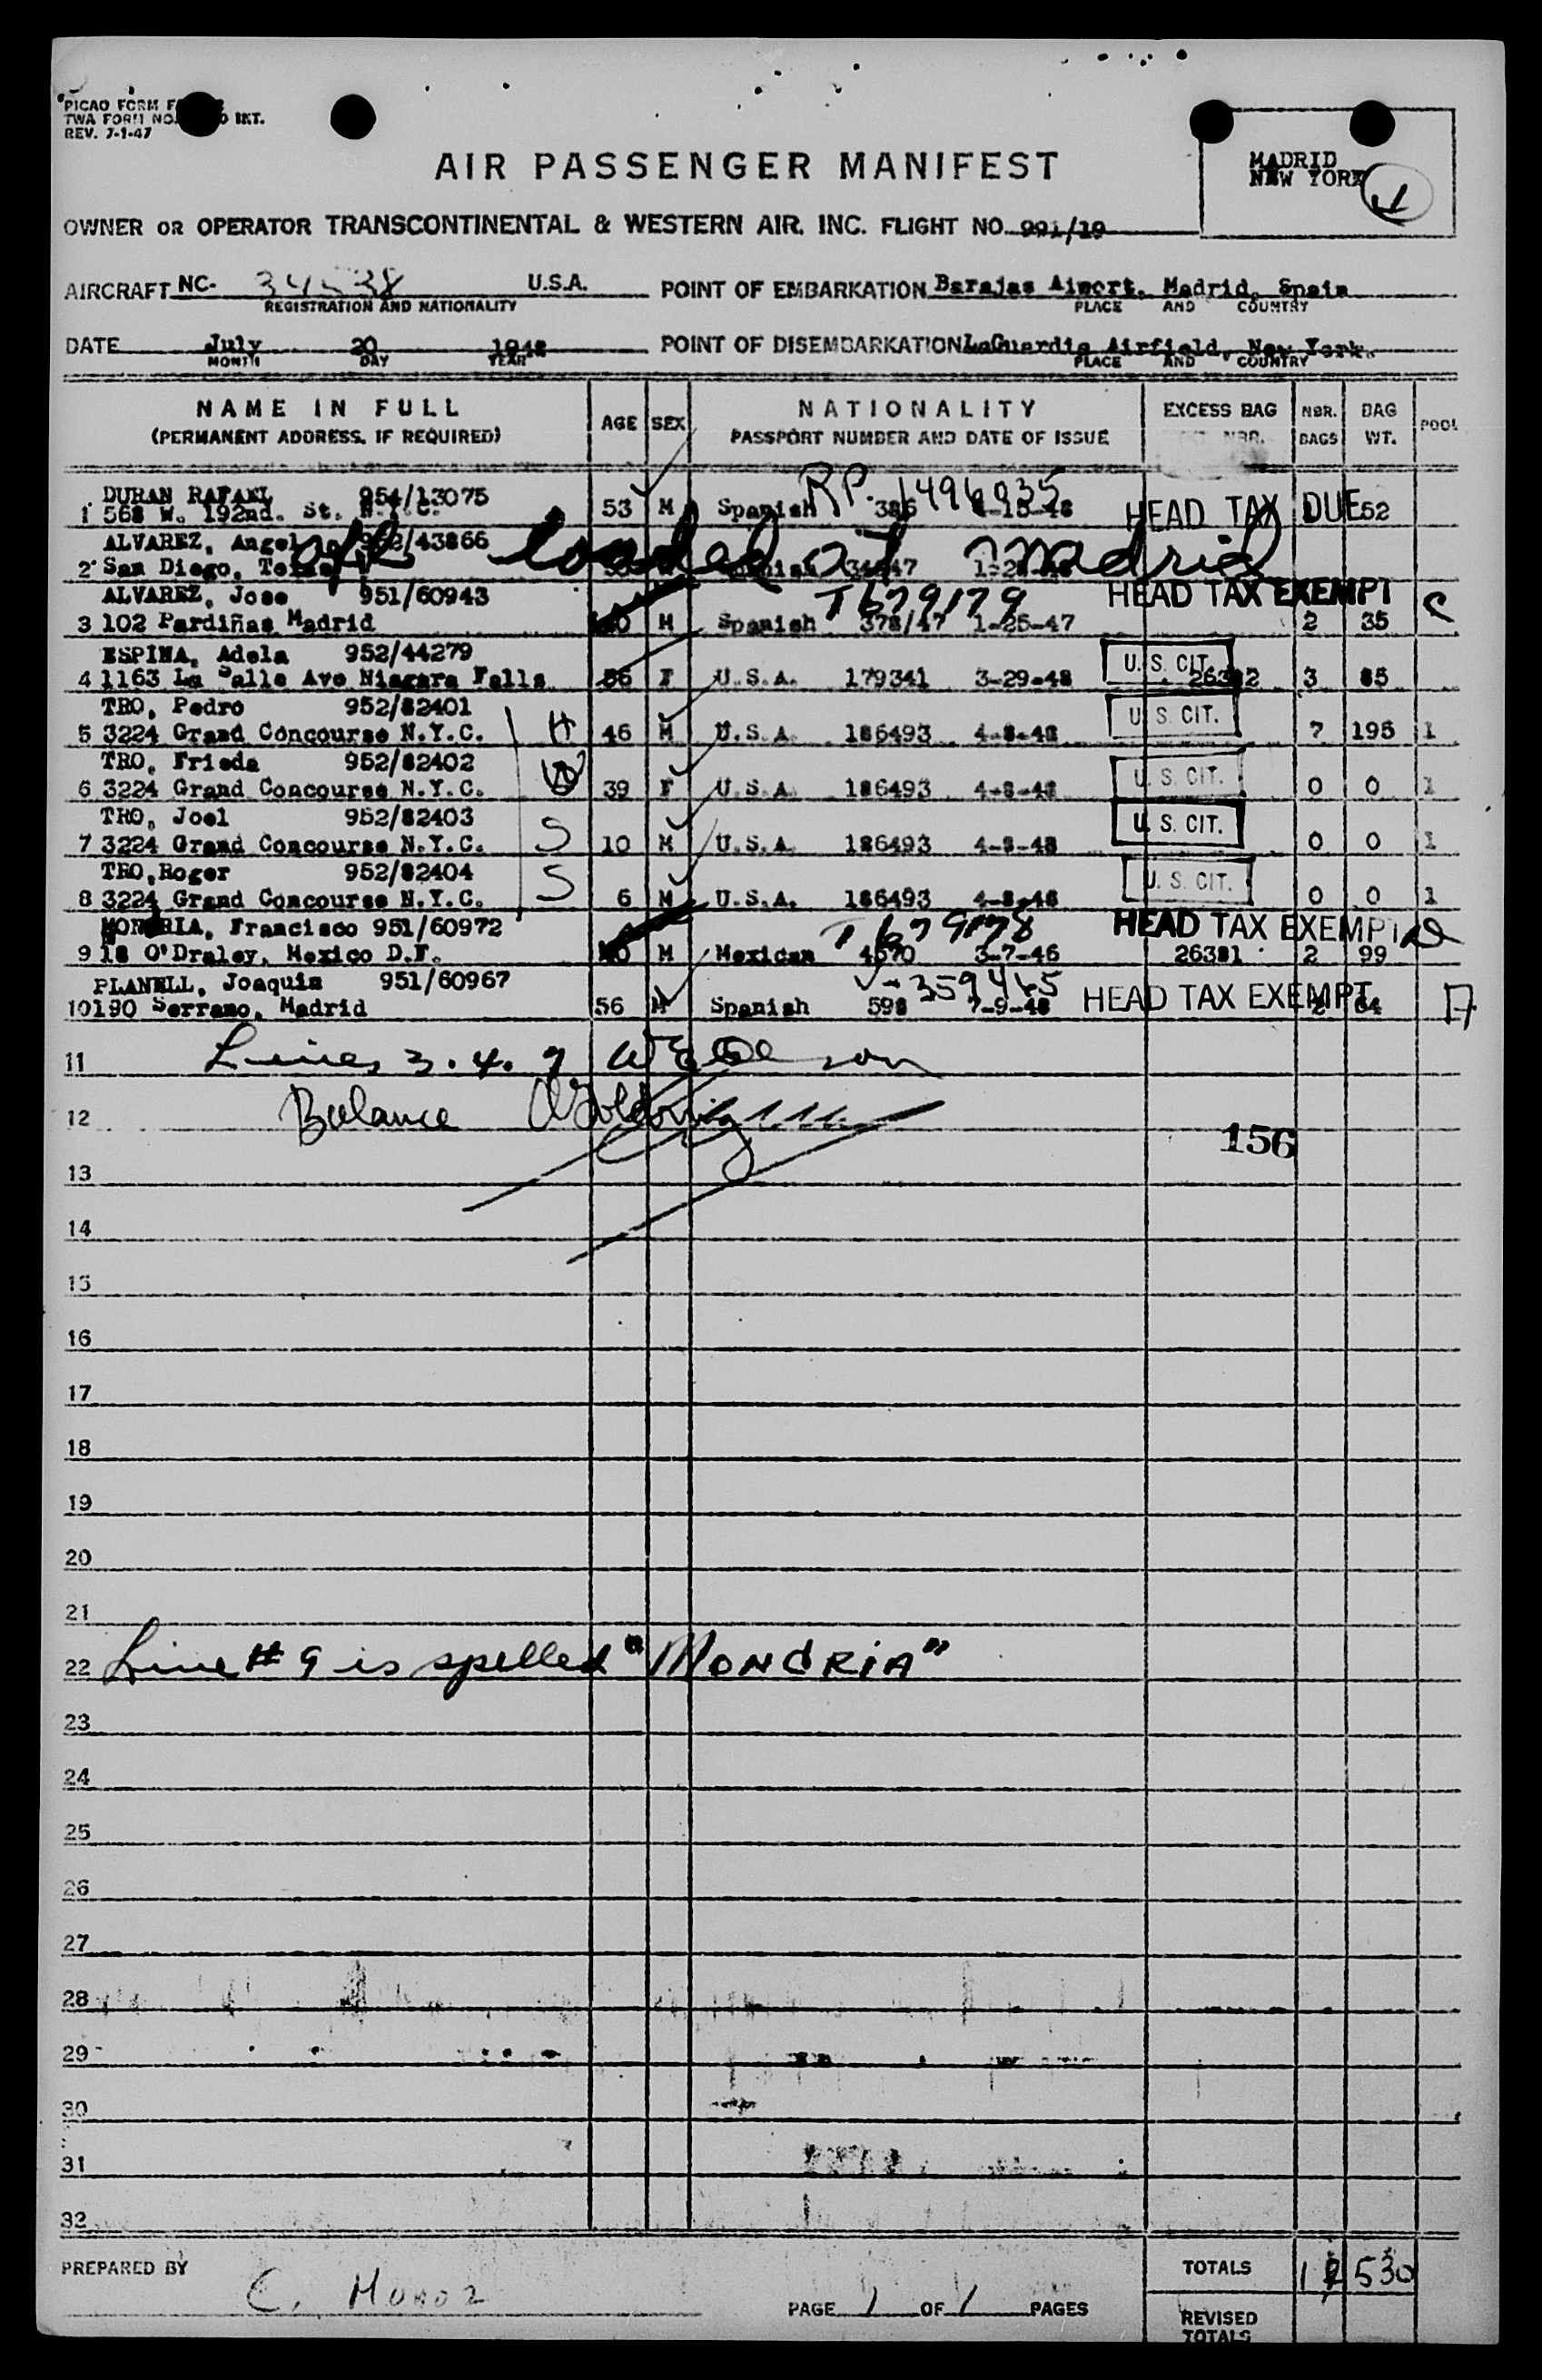 PICAO FORM
TWA FORM NO. INT.
REV. 7-1-47
MADRID
NEW YORK
1
AIR PASSENGER MANIFEST
OWNER OR OPERATOR TRANSCONTINENTAL & WESTERN AIR. INC. FLIGHT NO. 991/19
AIRCRAFT NC- U.S.A. POINT OF EMBARKATION Barajas Airport, Madrid, Spain
REGISTRATION AND NATIONALITY PLACE AND COUNTRY
DATE July 20 1948 POINT OF DISEMBARKATION LaGuardia Airfield, New York.
MONTH DAY YEAR PLACE AND COUNTRY
NAME IN FULL AGE SEX NATIONALITY EXCESS BAG NBR. BAG POOL
(PERMANENT ADDRESS, IF REQUIRED) PASSPORT NUMBER AND DATE OF ISSUE NBR. BAGS WT.
DURAN RAFAEL 954/13075 RP. 1496035
1 568 W. 192nd. St. N.Y.C. 53 M Spanish HEAD TAX DUE 52
ALVAREZ, Angel /43866 off loaded at Madrid
2 San Diego, Texas
ALVAREZ, Jose 951/60943 T679179 HEAD TAX EXEMPT C
3 102 Pardiñas Madrid M Spanish 378/47 1-25-47 2 35
ESPINA, Adela 952/44279 U.S. CIT.
4 1163 La Salle Ave Niagara Falls 56 F U.S.A. 179341 3-29-48 26382 3 85
TRO, Pedro 952/82401 U.S. CIT.
5 3224 Grand Concourse N.Y.C. H 46 M U.S.A. 186493 4-8-48 7 195 1
TRO, Frieda 952/82402 W U.S. CIT.
6 3224 Grand Concourse N.Y.C. 39 F U.S.A. 186493 4-8-48 0 0 1
TRO, Joel 952/82403 U.S. CIT.
7 3224 Grand Concourse N.Y.C. S 10 M U.S.A. 186493 4-8-48 0 0 1
TRO, Roger 952/82404 U.S. CIT.
8 3224 Grand Concourse N.Y.C. S 6 M U.S.A. 186493 4-8-48 0 0 1
Francisco 951/60972 T 679178 HEAD TAX EXEMPT
9 18 O'Draley, Mexico D.F. M Mexican 4670 3-7-46 26381 2 99
PLANELL, Joaquin 951/60967 V-359465 HEAD TAX EXEMPT
10 190 Serrano, Madrid 56 M Spanish 598 7-9-48 2 64
11 Lines 3. 4. 9
12 Balance
156
13
14
15
16
17
18
19
20
21
22 Line # 9 is spelled "MONDRIA"
23
24
25
26
27
28
29
30
31
32
PREPARED BY C. Munoz PAGE 1 OF 1 PAGES TOTALS 530
REVISED
TOTALS